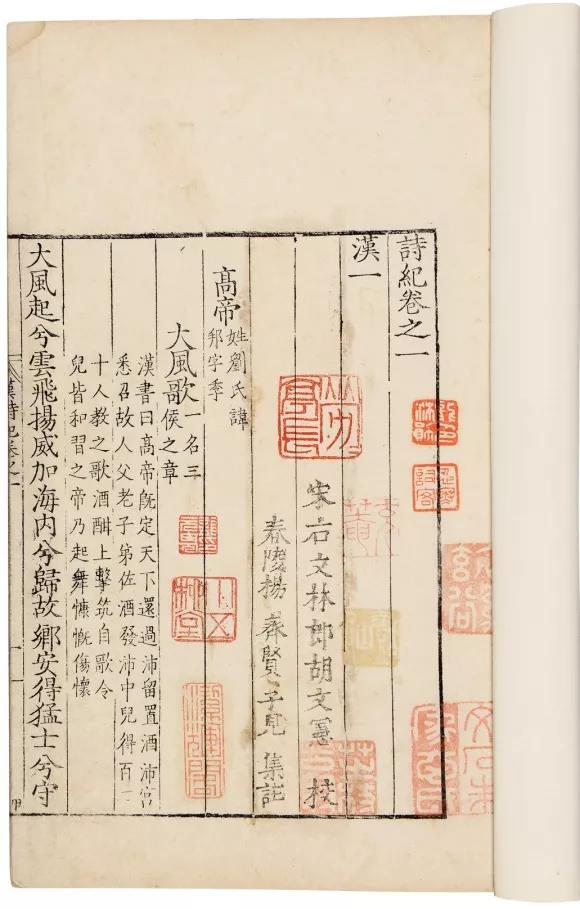 詩紀卷之一
漢一
宋右文林郎胡文 校
舂陵楊齊賢子見集註
髙帝 姓劉氏諱
邦字季
大風歌 一名三
侯之章
漢書曰髙帝旣定天下還過沛留置酒沛宮
悉召故人父老子弟佐酒發沛中兒得百二
十人教之歌酒酣上擊筑自歌令
兒皆和習之帝乃起舞慷慨傷懷
大風起兮雲飛揚威加海内兮歸故鄉安得猛士兮守
漢詩紀卷之一
亭長
小五柳堂